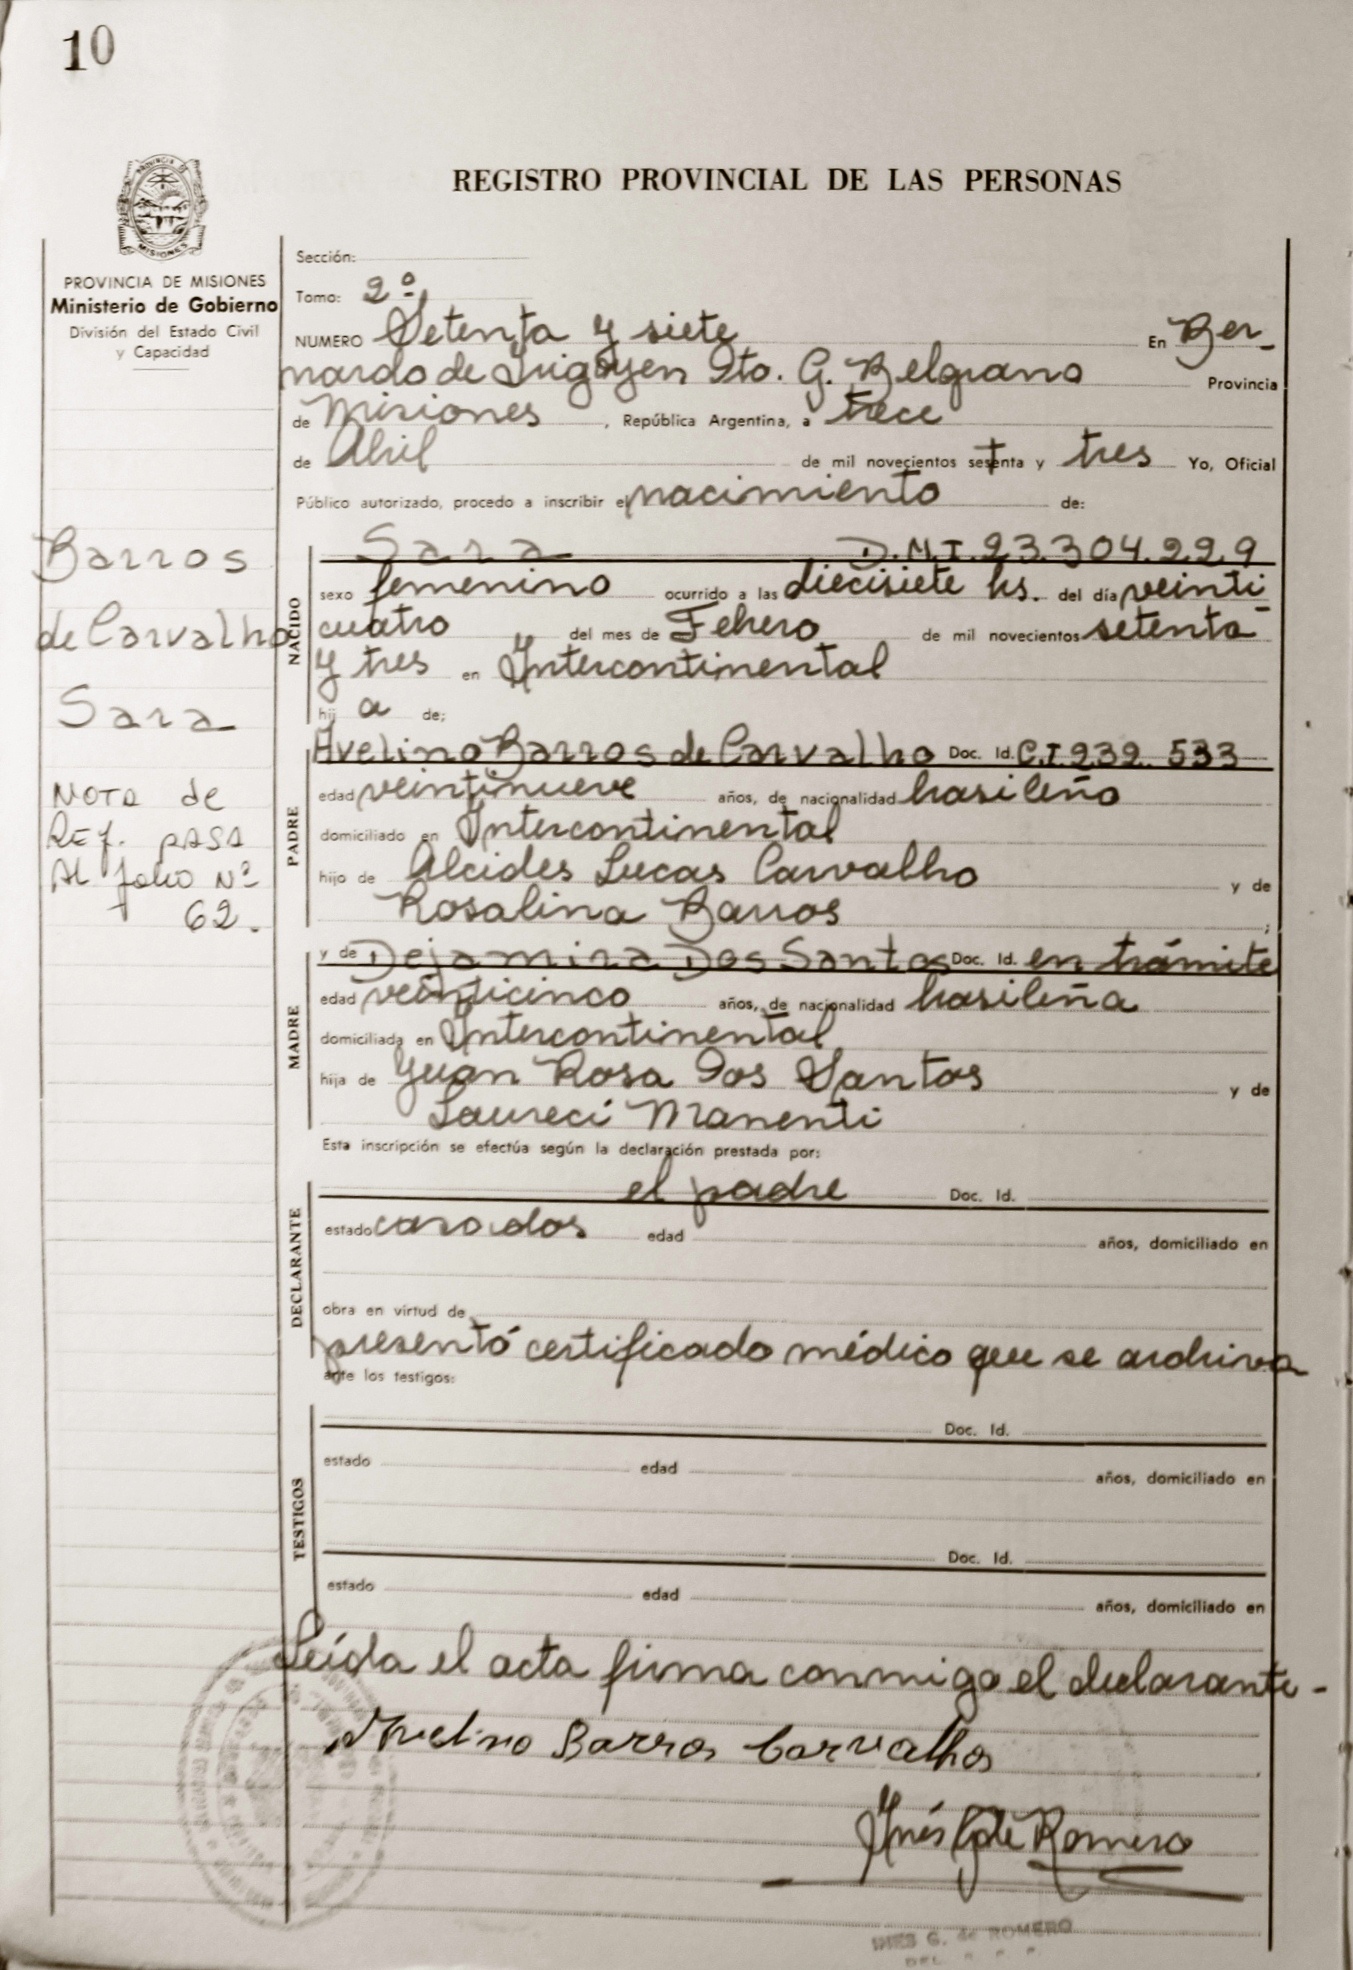 10
REGISTRO PROVINCIAL DE LAS PERSONAS
PROVINCIA DE MISIONES
Ministerio de Gobierno
División del Estado Civil
y Capacidad
Sección:
Tomo: 2º
NUMERO Setenta y siete En Ber-
nardo de Irigoyen Dto. G. Belgrano Provincia
de Misiones, República Argentina, a trece
de Abril de mil novecientos setenta y tres Yo, Oficial
Público autorizado, procedo a inscribir el nacimiento de:
Barros
de Carvalho
Sara
NOTA de
REf. PASA
Al folio Nº
62.
NACIDO
Sara D.N.I. 23.304.229
sexo femenino ocurrido a las diecisiete hs. del día veinti
cuatro del mes de Febrero de mil novecientos setenta
y tres en Intercontinental
hij a de;
PADRE
Avelino Barros de Carvalho Doc. Id. C.I 239.533
edad veintinueve años, de nacionalidad brasileño
domiciliado en Intercontinental
hijo de Alcides Lucas Carvalho y de
Rosalina Barros ;
MADRE
y de Dejamira Dos Santos Doc. Id. en trámite
edad veinticinco años, de nacionalidad brasileña
domiciliada en Intercontinental
hija de Juan Rosa Dos Santos y de
Laureci Manenti
Esta inscripción se efectúa según la declaración prestada por:
DECLARANTE
el padre Doc. Id.
estado casados edad años, domiciliado en
obra en virtud de
presentó certificado médico que se archiva
ante los testigos:
TESTIGOS
Doc. Id.
estado edad años, domiciliado en
Doc. Id.
estado edad años, domiciliado en
Leída el acta firma conmigo el declarante-
Avelino Barros Carvalho
Inés G de Romero
INES G. de ROMERO
DEL.